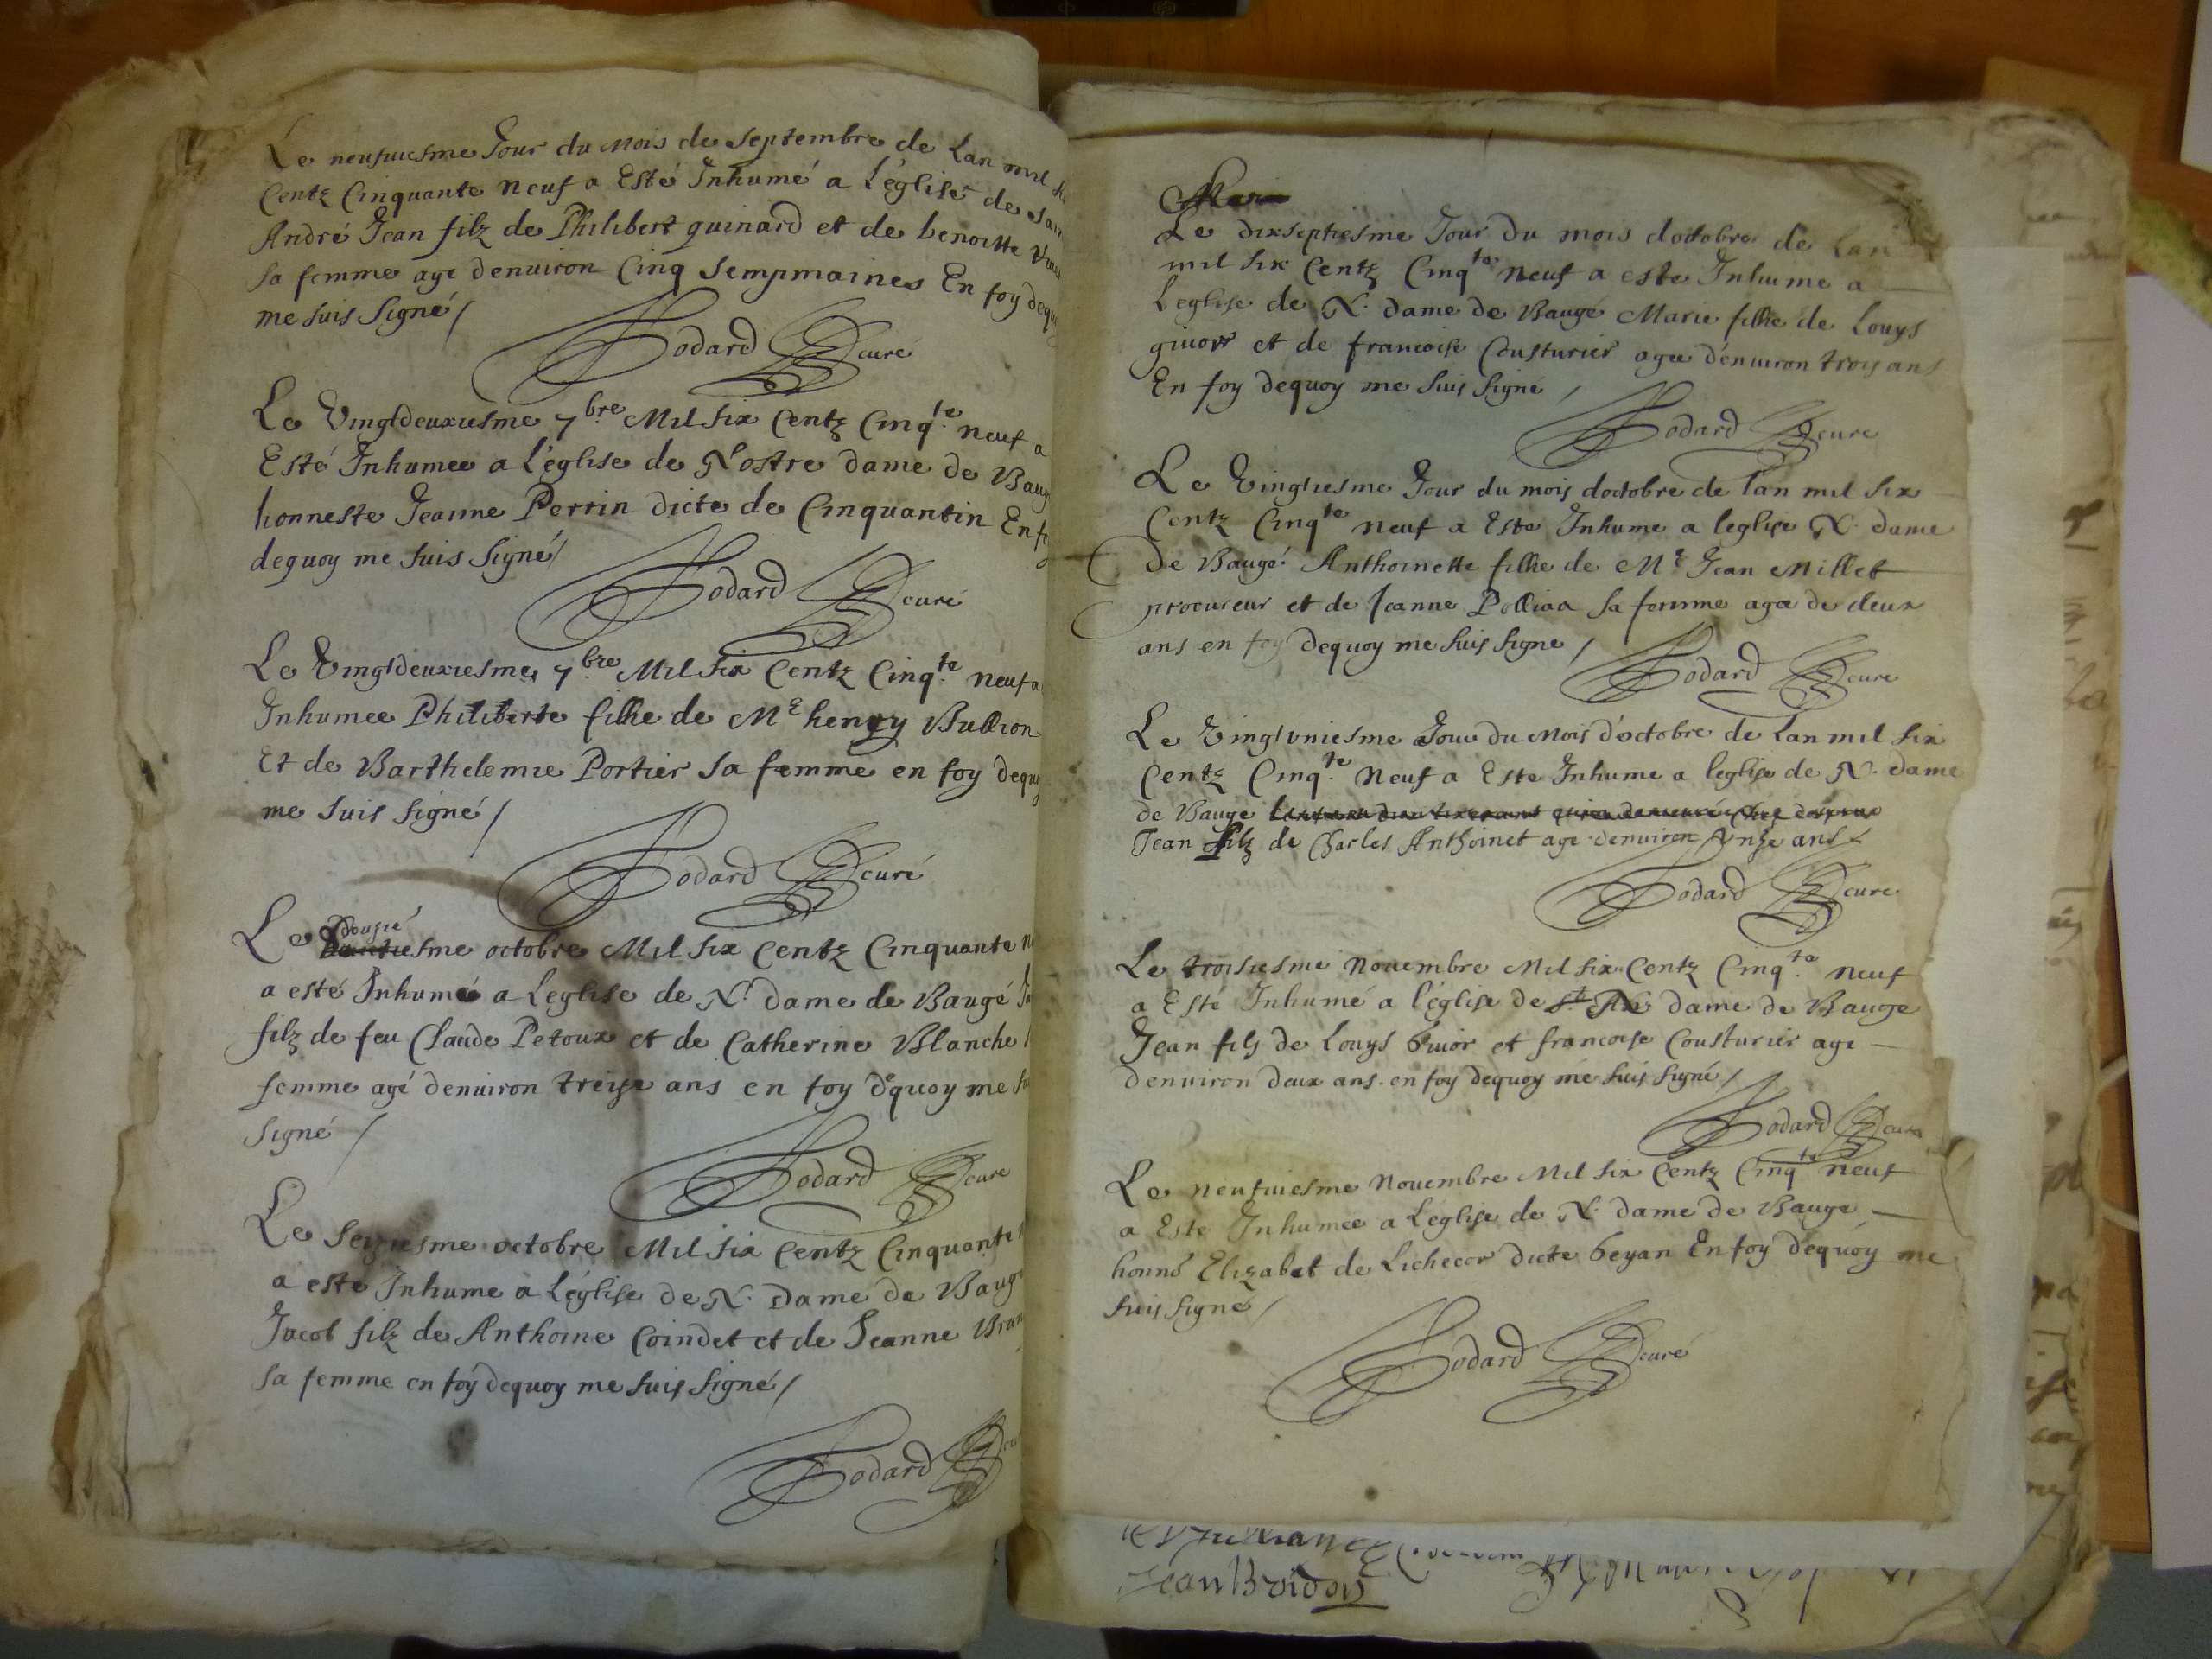 Le neufuiesme Jour du Mois de Septembre de Lan mil
Centz Cinquante neuf a Esté Inhumé a L'église de
André Jean filz de Philibert guinard et de benoitte
Sa femme age denuiron Cinq Sempmaines En foy dequ
me suis Signé /
Jodard curé
Le Vingtdeuxiesme 7.bre Mil six Centz Cinq.te neuf a
Esté Inhumee a L'église de Nostre dame de Baug
honneste Jeanne Perrin dicte de Cinquantin En fo
dequoy me suis Signé /
Jodard curé
Le Vingtdeuxiesme 7.bre Mil six Centz Cinq.te neuf a
Inhumee Philiberte fillie de Me henry Bullion
Et de Barthelemie Portier sa femme en foy dequ
me suis signé /
Jodard curé
Le douziesme octobre Mil six Centz Cinquante n
a esté Inhumé a Leglise de N. dame de Baugé
filz de feu Claude Petoux et de Catherine Blanche
femme agé denuiron treize ans en foy dequoy me
signé /
Jodard curé
Le seiziesme octobre Mil six Centz Cinquante
a esté Inhume a Léglise de N. Dame de Baug
Jacob filz de Anthoine Coindet et de Jeanne
sa femme en foy dequoy me suis signé /
Jodard
Marie
Le dixseptiesme Jour Du mois doctobre de Lan
mil six Centz Cinqte neuf a este Inhume a
Leglise de N. dame de Baugé Marie fillie de Louys
giuors et de francoise Cousturier agee d'enuiron trois ans
En foy dequoy me suis signé /
Jodard cure
Le Vingtiesme Jour du mois doctobre de lan mil six
Centz Cinqte neuf a Este Inhume a leglise N. dame
de Baugé Anthoinette fillie de Me Jean Millet
procureur et de Jeanne Polliaa sa femme agee de deux
ans en foy dequoy me suis signe /
Jodard cure
Le Vingtvniesme Jour Du Mois d'octobre de Lan mil six
Centz Cinq.te Neuf a Este Inhume a leglise de N. dame
de Bauge
Jean filz de Charles Anthoinet age denuiron Vnze ans
Jodard cure
Le troisiesme Nouembre Mil six Centz Cinq.te neuf
a Esté Inhumé a l'église de N. dame de Bauge
Jean fils de Louys Giuor et francoise Cousturier age
denuiron deux ans en foy dequoy me suis signé /
Jodard cure
Le neufuiesme Nouembre Mil six Centz Cinqte neuf
a Este Inhumee a Léglise de N. Dame de Bauge
honne Elizabet de Lichecor dicte Geyan En foy dequoy me
suis signé /
Jodard curé
Jean Bridon